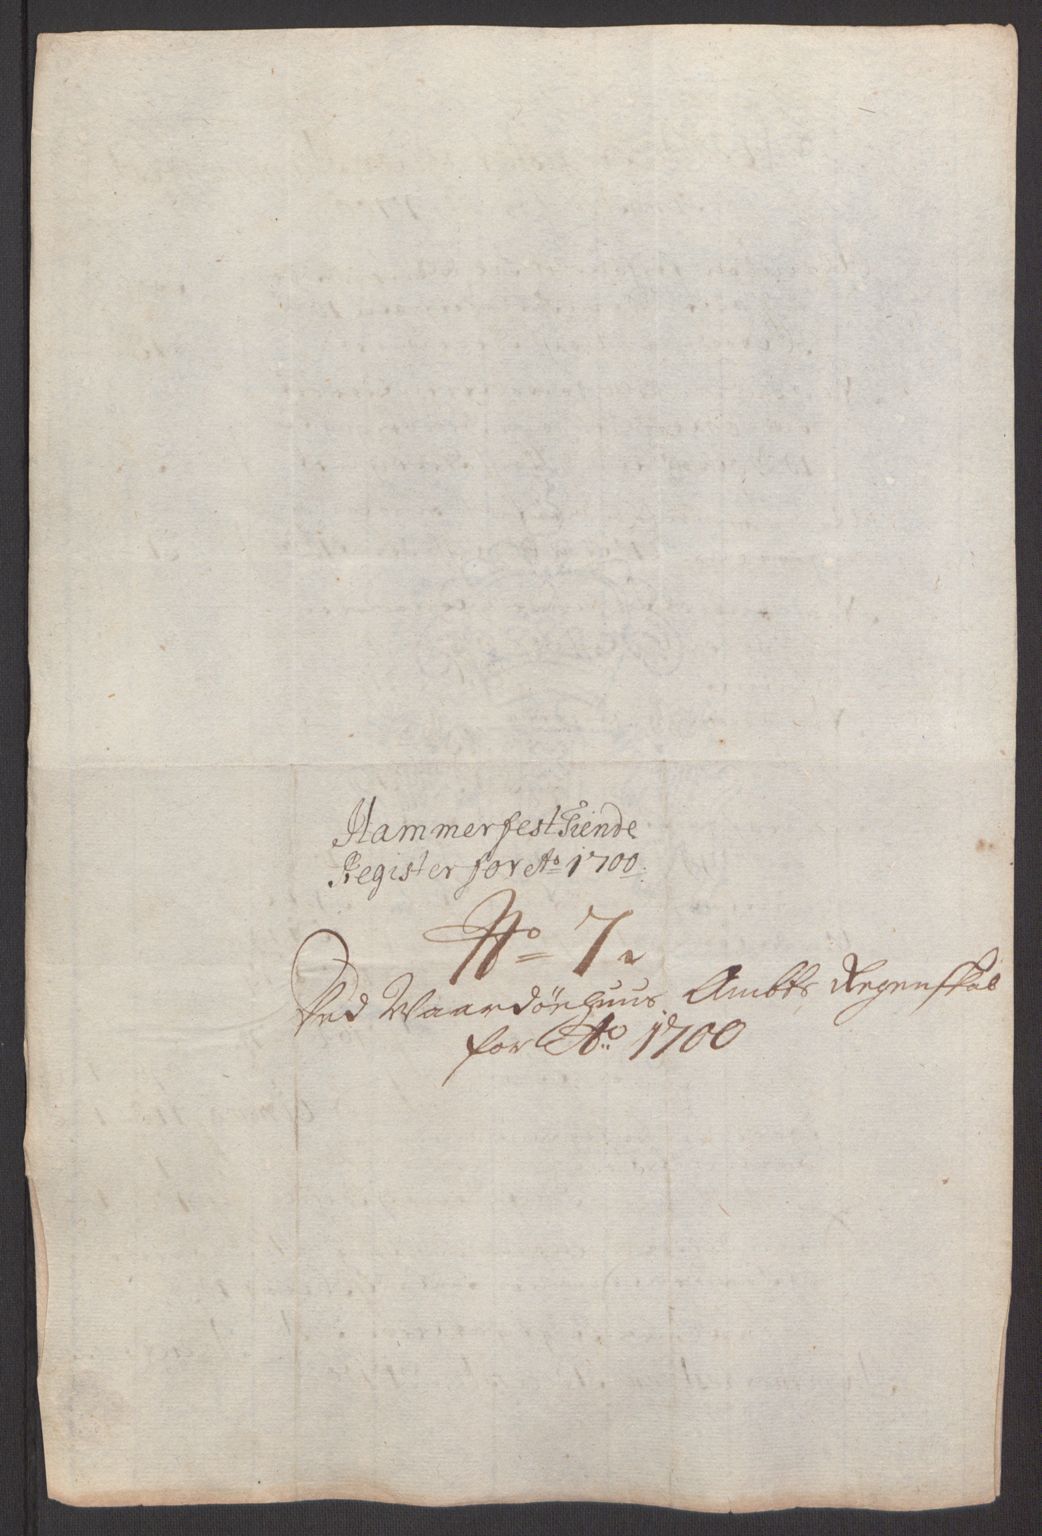 Hammerfest Tiende
Register for Ao 1700.
No 7.
Ved Waardøehuus Ambts Regenskab
for Ao 1700